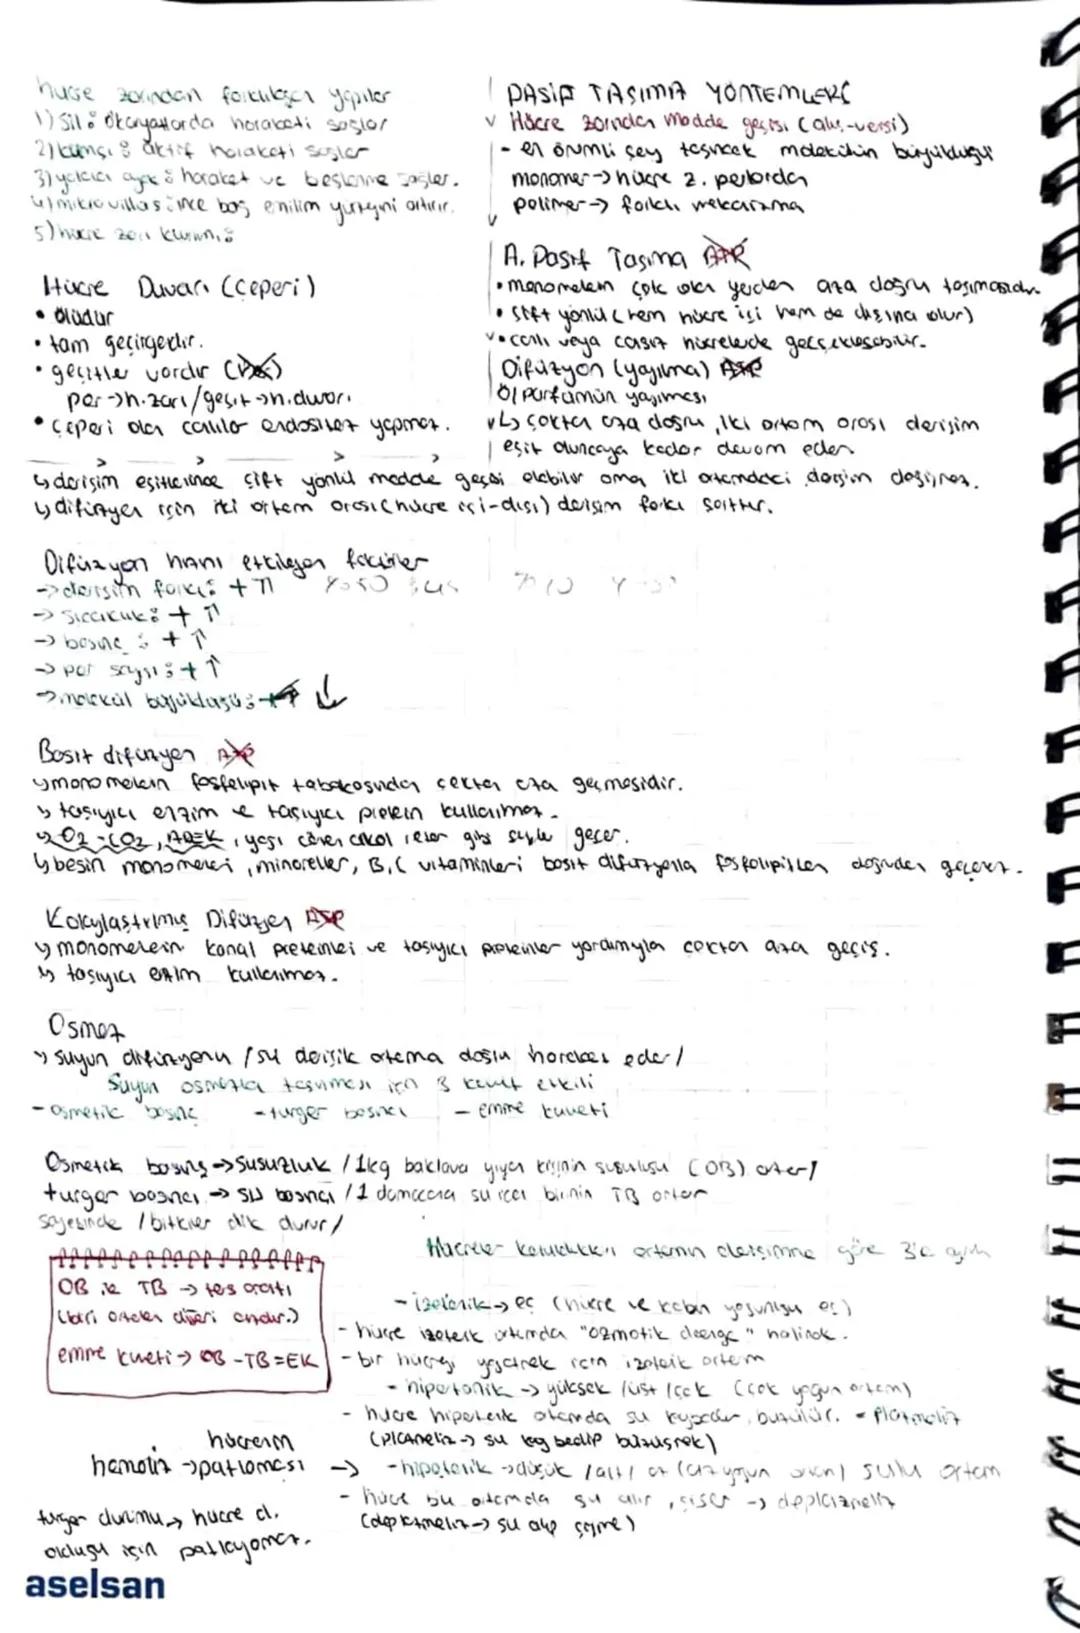 hücre zarından farklılaşan yapılar
1) Sil: Ökaryotlarda hareketi sağlar
2) kamçı: aktif hareketi sağlar
3) yalancı ayak: hareket ve beslenme sağlar.
4) mikrovillus: ince bağ. emilim yüzeyini artırır.
5) hücre zarı kıvrımı:
Hücre Duvarı (Çeperi)
• ölüdür
• tam geçirgendir.
• geçitler vardır
por -> h.zarı / geçit -> h.duvarı
• Çeperi olan canlılar endositoz yapmaz.
PASİF TAŞIMA YÖNTEMLERİ
Hücre zarından madde geçişi (alış-verişi)
- en önemli şey taşınacak molekülün büyüklüğü
monomer -> hücre z. porlardan
polimer -> farklı mekanizma
A. Pasif Taşıma ATP
• monomerlerin çok olan yerden aza doğru taşımasıdır.
• Çift yönlü (hem hücre içi hem de dışına olur)
• canlı veya cansız hücrelerde gerçekleşebilir.
Difüzyon (yayılma) ATP
Ö/ Parfümün yayılması
↳ çoktan aza doğru, iki ortam arası derişim
eşit oluncaya kadar devam eder.
↳ derişim eşitlenince çift yönlü madde geçişi olabilir ama iki ortamdaki derişim değişmez.
↳ difüzyon için iki ortam arası (hücre içi-dışı) derişim farkı şarttır.
Difüzyon hızını etkileyen faktörler
-> derişim farkı: + ↑
-> Sıcaklık: + ↑
-> basınç: + ↑
-> por sayısı: + ↑
-> molekül büyüklüğü: ↓
Basit difüzyon ATP
↳ monomerlerin fosfolipit tabakasından çoktan aza geçmesidir.
↳ taşıyıcı enzim ve taşıyıcı protein kullanılmaz.
↳ O2 - CO2, ADEK, yağı çözen alkol, eter gibi şeyler geçer.
↳ besin monomerleri, mineraller, B, C vitaminleri basit difüzyonla fosfolipitten doğrudan geçemez.
Kolaylaştırılmış Difüzyon ATP
↳ monomerlerin kanal proteinleri ve taşıyıcı proteinler yardımıyla çoktan aza geçiş.
↳ taşıyıcı enzim kullanılmaz.
Osmoz
↳ suyun difüzyonu / su derişik ortama doğru hareket eder /
Suyun osmozla taşınması için 3 kuvvet etkili
- Osmotik basınç - turgor basıncı - emme kuvveti
Osmotik basınç -> susuzluk / 1kg baklava yiyen kişinin susuzluğu (OB) artar /
turgor basıncı -> su basıncı / 1 damacana su içen birinin TB artar
sayesinde / bitkiler dik durur /
OB ile TB -> ters orantı
(biri artarken diğeri azalır.)
emme kuvveti -> OB - TB = EK
Hücreler konuldukları ortamın derişimine göre 3'e ayrılır
- izotonik -> eş (hücre ve kabın yoğunluğu eş)
- hücre izotonik ortamda "ozmotik denge" halinde.
- bir hücreyi yaşatmak için izotonik ortam
- hipertonik -> yüksek / üst / çok (çok yoğun ortam)
- hücre hipertonik ortamda su kaybeder, büzülür. = Plazmoliz
(plazmoliz -> su kaybedip büzüşmek)
- hipotonik -> düşük / alt / az (az yoğun ortam) sulu ortam
- hücre bu ortamda su alır, şişer -> deplazmoliz
(deplazmoliz -> su alıp şişme)
hücrenin
hemoliz -> patlaması ->
turgor durumu -> hücre d.
olduğu için patlayamaz.
aselsan